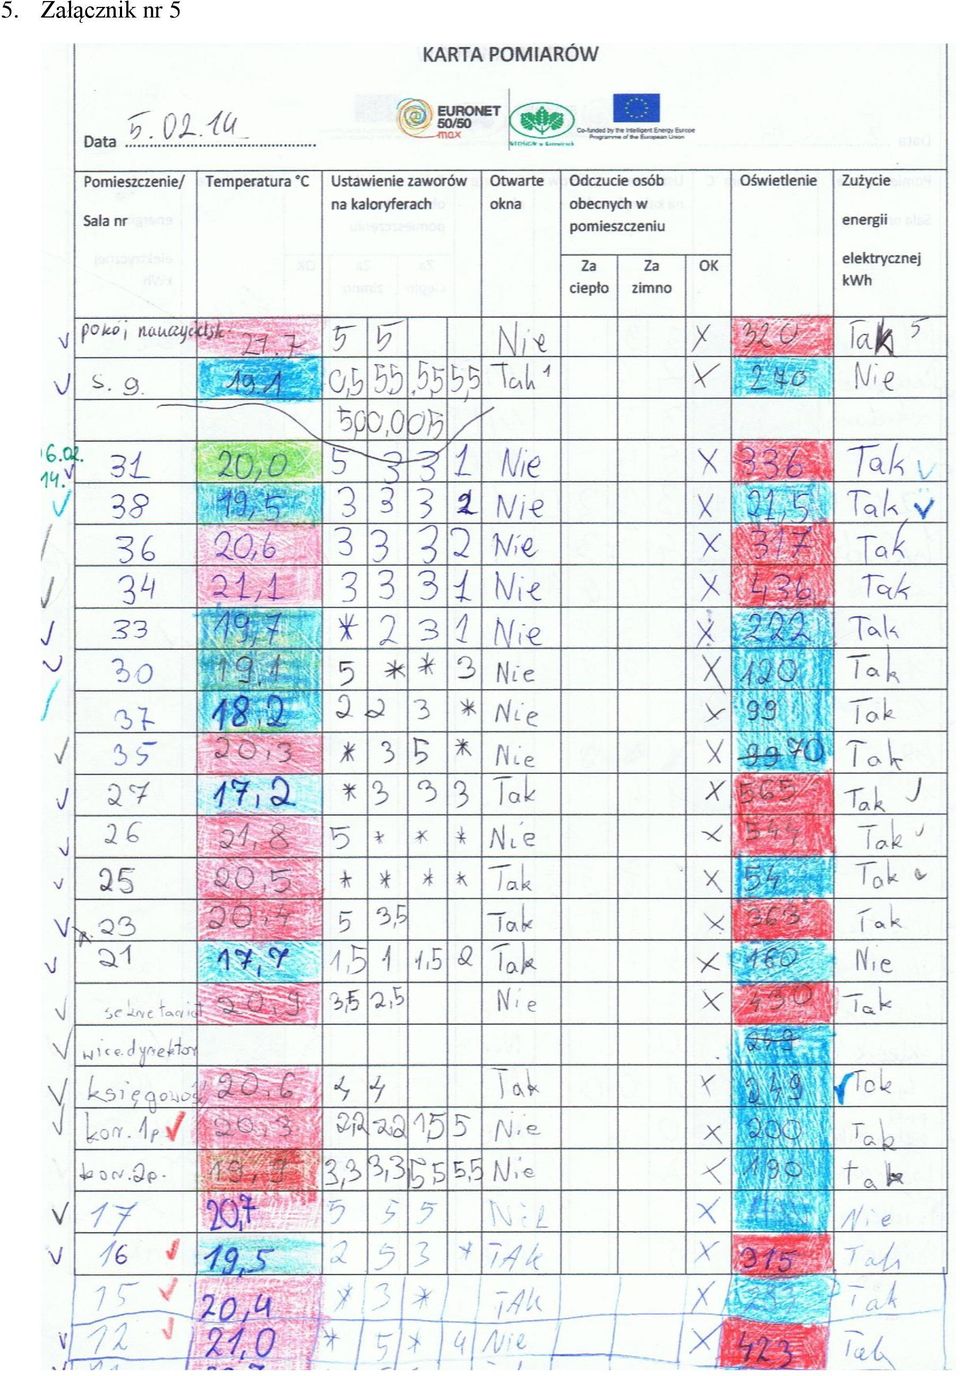 5. Załącznik nr 5
KARTA POMIARÓW
Data 5.02.14
EURONET
50/50
max
Co-funded by the Intelligent Energy Europe
Programme of the European Union
Pomieszczenie/ Sala nr Temperatura °C Ustawienie zaworów na kaloryferach Otwarte okna Odczucie osób obecnych w pomieszczeniu Oświetlenie Zużycie energii elektrycznej kWh
Za ciepło Za zimno OK
pokój 21.7 5 5 Nie X 320 Tak 5
s. g. 19.1 0,5 55 55 55 Tak 1 X 270 Nie
500,005
6.02.
14.
31 20,0 5 3 3 1 Nie X 336 Tak
38 19,5 3 3 3 2 Nie X 21,5 Tak
36 20,6 3 3 3 2 Nie X 317 Tak
34 21,1 3 3 3 1 Nie X 436 Tak
33 19,7 * 2 3 1 Nie X 222 Tak
30 19,1 5 * * 3 Nie X 120 Tak
37 18,2 2 2 3 * Nie X 99 Tak
35 20,3 * 3 5 * Nie X 99 70 Tak
27 17,2 * 3 3 3 Tak X 565 Tak
26 21,8 5 * * * Nie X 544 Tak
25 20,5 * * * * Tak X 54 Tak
23 20,4 5 3,5 Tak X 363 Tak
21 17,7 1,5 1 1,5 2 Tak X 160 Nie
sekretariat 20,9 3,5 2,5 Nie X 430 Tak
wicedyrektor 249
księgowość 20,6 4 4 Tak X 249 Tak
kor. 1p. 20,3 2,2 2,2 1,5 5 Nie X 200 Tak
kor. 2p. 19,9 3,3 3,3 5,5 5,5 Nie X 190 tak
17 20,7 5 5 5 Nie X Nie
16 19,5 2 5 3 * TAk X 315 Tak
15 20,4 * 3 * TAk X Tak
12 21,0 * 5 * 4 Nie X 423 Tak